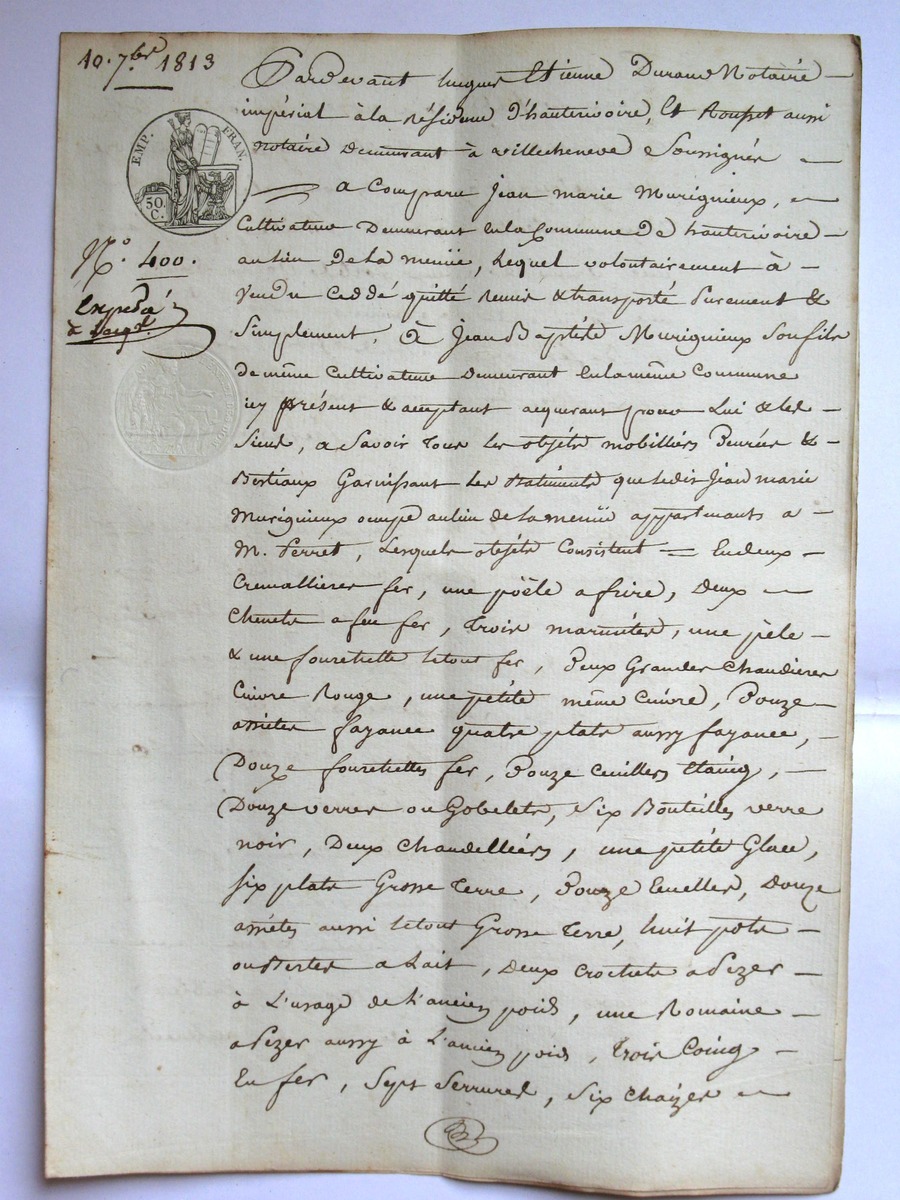 10. 7bre 1813
EMP. FRAN.
50.
C.
N.o 400.
Expedié
Pardevant hugues Etienne Durand Notaire
impérial à la résidence d'hauterivoire, Et Roupet aussi
notaire demeurant à villecheneve Soussignés
a Comparu Jean marie Murigneux,
Cultivateur Demeurant en la Commune de hauterivoire
au lieu de la menüe, Lequel volontairement à
vendu Ceddé quitté remis & transporté purement &
Simplement, à Jean Baptiste Murigneux Son fils
de même Cultivateur Demeurant en la même Commune
icy présent & acceptant acquerant pour Lui & les
Siens, a Savoir Tous les objéts mobilliérs Denrées &
Bestiaux Garnissant les Batiments que ledit Jean marie
Murigneux occupe au lieu de la menüe appartenants a
M. Ferret, Lesquels objéts Consistent = En deux
Cremallieres fer, une poële a frire, Deux
Chenets a feu fer, Trois marmites, une pèle
& une fourchette le tout fer, Deux Grandes Chaudieres
Cuivre Rouge, une petite même Cuivre, Douze
assietes fayance quatre plats aussy fayance,
Douze fourchettes fer, Douze Cuillers Etaing,
Douze verres ou Gobelets, Six Bouteilles verre
noir, Deux Chandelliérs, une petite Glace,
Six plats Grosse Terre, Douze Ecuelles, Douze
assiétes aussi le tout Grosse Terre, huit pots
ou Bertes a Lait, Deux crochets a Pezer
à L'usage de L'ancien poids, une Romaine
a Pezer aussy à L'ancien poids, Trois Coing
En fer, Sept Serrures, Six Chaizes